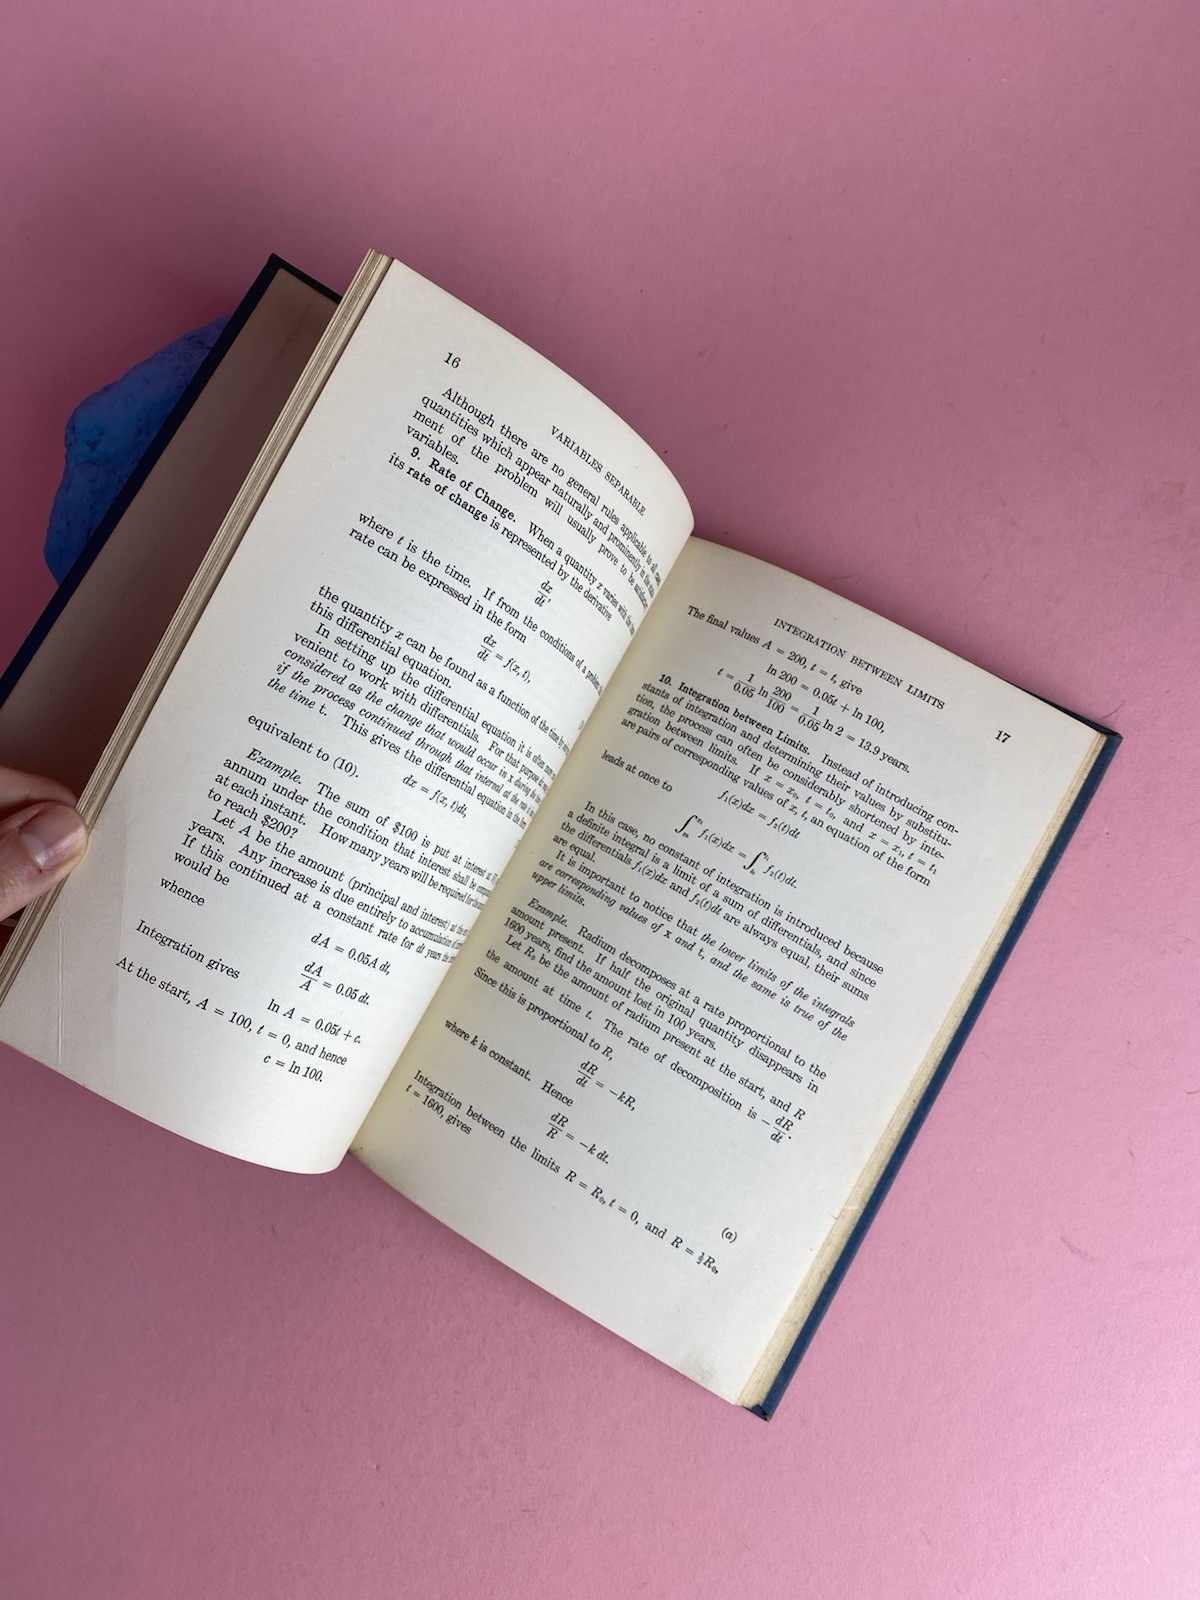 16
VARIABLES SEPARABLE
Although there are no general rules applicable to all
quantities which appear naturally and prominently in the
ment of the problem will usually prove to be
variables.
9. Rate of Change. When a quantity x varies with the
its rate of change is represented by the derivative
dx/dt,
where t is the time. If from the conditions of a problem
rate can be expressed in the form
dx/dt = f(x, t),
the quantity x can be found as a function of the time by
this differential equation.
In setting up the differential equation it is often
venient to work with differentials. For that purpose
considered as the change that would occur in x during the
if the process continued through that interval at the rate
the time t. This gives the differential equation in the
dx = f(x, t)dt,
equivalent to (10).
Example. The sum of $100 is put at interest at
annum under the condition that interest shall be
at each instant. How many years will be required for the
to reach $200?
Let A be the amount (principal and interest) at
years. Any increase is due entirely to accumulation of
If this continued at a constant rate for dt years the
would be
dA = 0.05A dt,
whence
dA/A = 0.05 dt.
Integration gives
ln A = 0.05t + c.
At the start, A = 100, t = 0, and hence
c = ln 100.
INTEGRATION BETWEEN LIMITS
17
The final values A = 200, t = t, give
ln 200 = 0.05t + ln 100,
t = 1/0.05 ln 200/100 = 1/0.05 ln 2 = 13.9 years.
10. Integration between Limits. Instead of introducing con-
stants of integration and determining their values by substitu-
tion, the process can often be considerably shortened by inte-
gration between limits. If x = x₀, t = t₀, and x = x₁, t = t₁
are pairs of corresponding values of x, t, an equation of the form
f₁(x)dx = f₂(t)dt
leads at once to
∫ₓ₀ˣ¹ f₁(x)dx = ∫ₜ₀ᵗ¹ f₂(t)dt.
In this case, no constant of integration is introduced because
a definite integral is a limit of a sum of differentials, and since
the differentials f₁(x)dx and f₂(t)dt are always equal, their sums
are equal.
It is important to notice that the lower limits of the integrals
are corresponding values of x and t, and the same is true of the
upper limits.
Example. Radium decomposes at a rate proportional to the
amount present. If half the original quantity disappears in
1600 years, find the amount lost in 100 years.
Let R₀ be the amount of radium present at the start, and R
the amount at time t. The rate of decomposition is −dR/dt.
Since this is proportional to R,
dR/dt = −kR,
where k is constant. Hence
dR/R = −k dt. (a)
Integration between the limits R = R₀, t = 0, and R = ½R₀,
t = 1600, gives